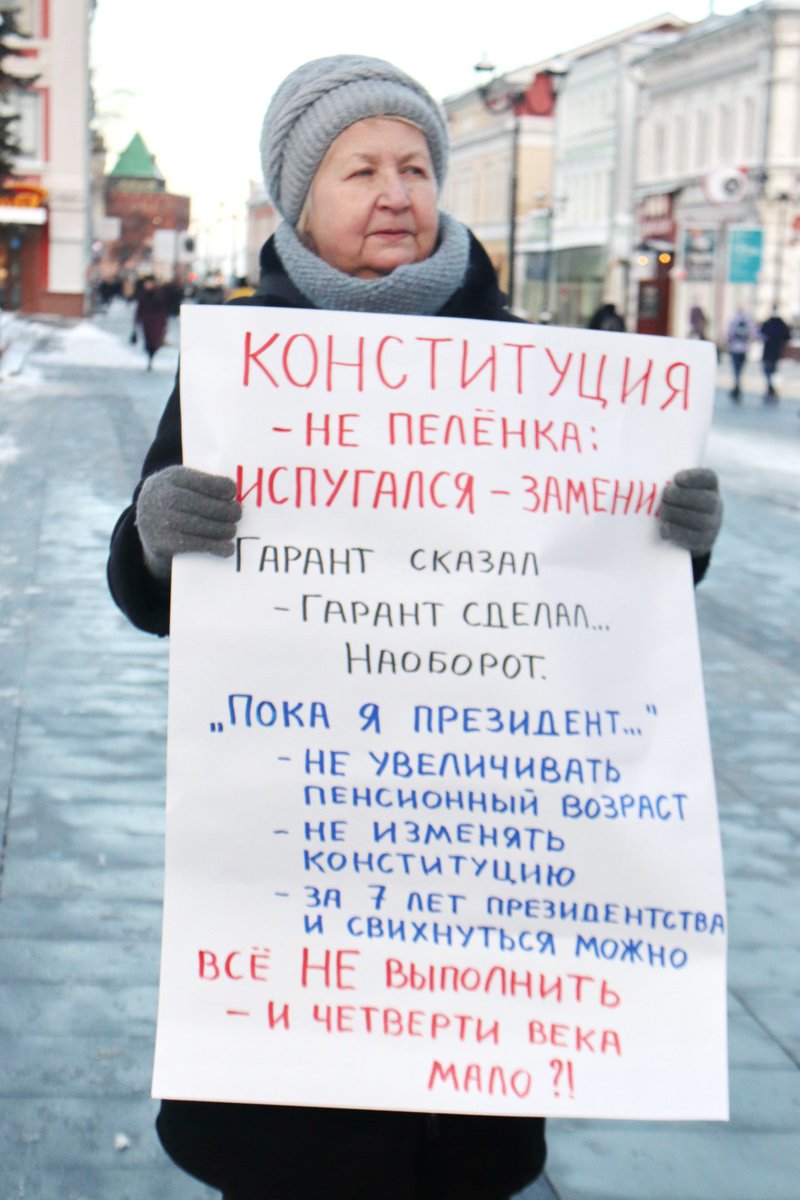 КОНСТИТУЦИЯ
- НЕ ПЕЛЁНКА:
ИСПУГАЛСЯ - ЗАМЕНИ
ГАРАНТ СКАЗАЛ
- ГАРАНТ СДЕЛАЛ...
НАОБОРОТ.
„ПОКА Я ПРЕЗИДЕНТ..."
- НЕ УВЕЛИЧИВАТЬ
ПЕНСИОННЫЙ ВОЗРАСТ
- НЕ ИЗМЕНЯТЬ
КОНСТИТУЦИЮ
- ЗА 7 ЛЕТ ПРЕЗИДЕНТСТВА
И СВИХНУТЬСЯ МОЖНО
ВСЁ НЕ ВЫПОЛНИТЬ
- И ЧЕТВЕРТИ ВЕКА
МАЛО ?!